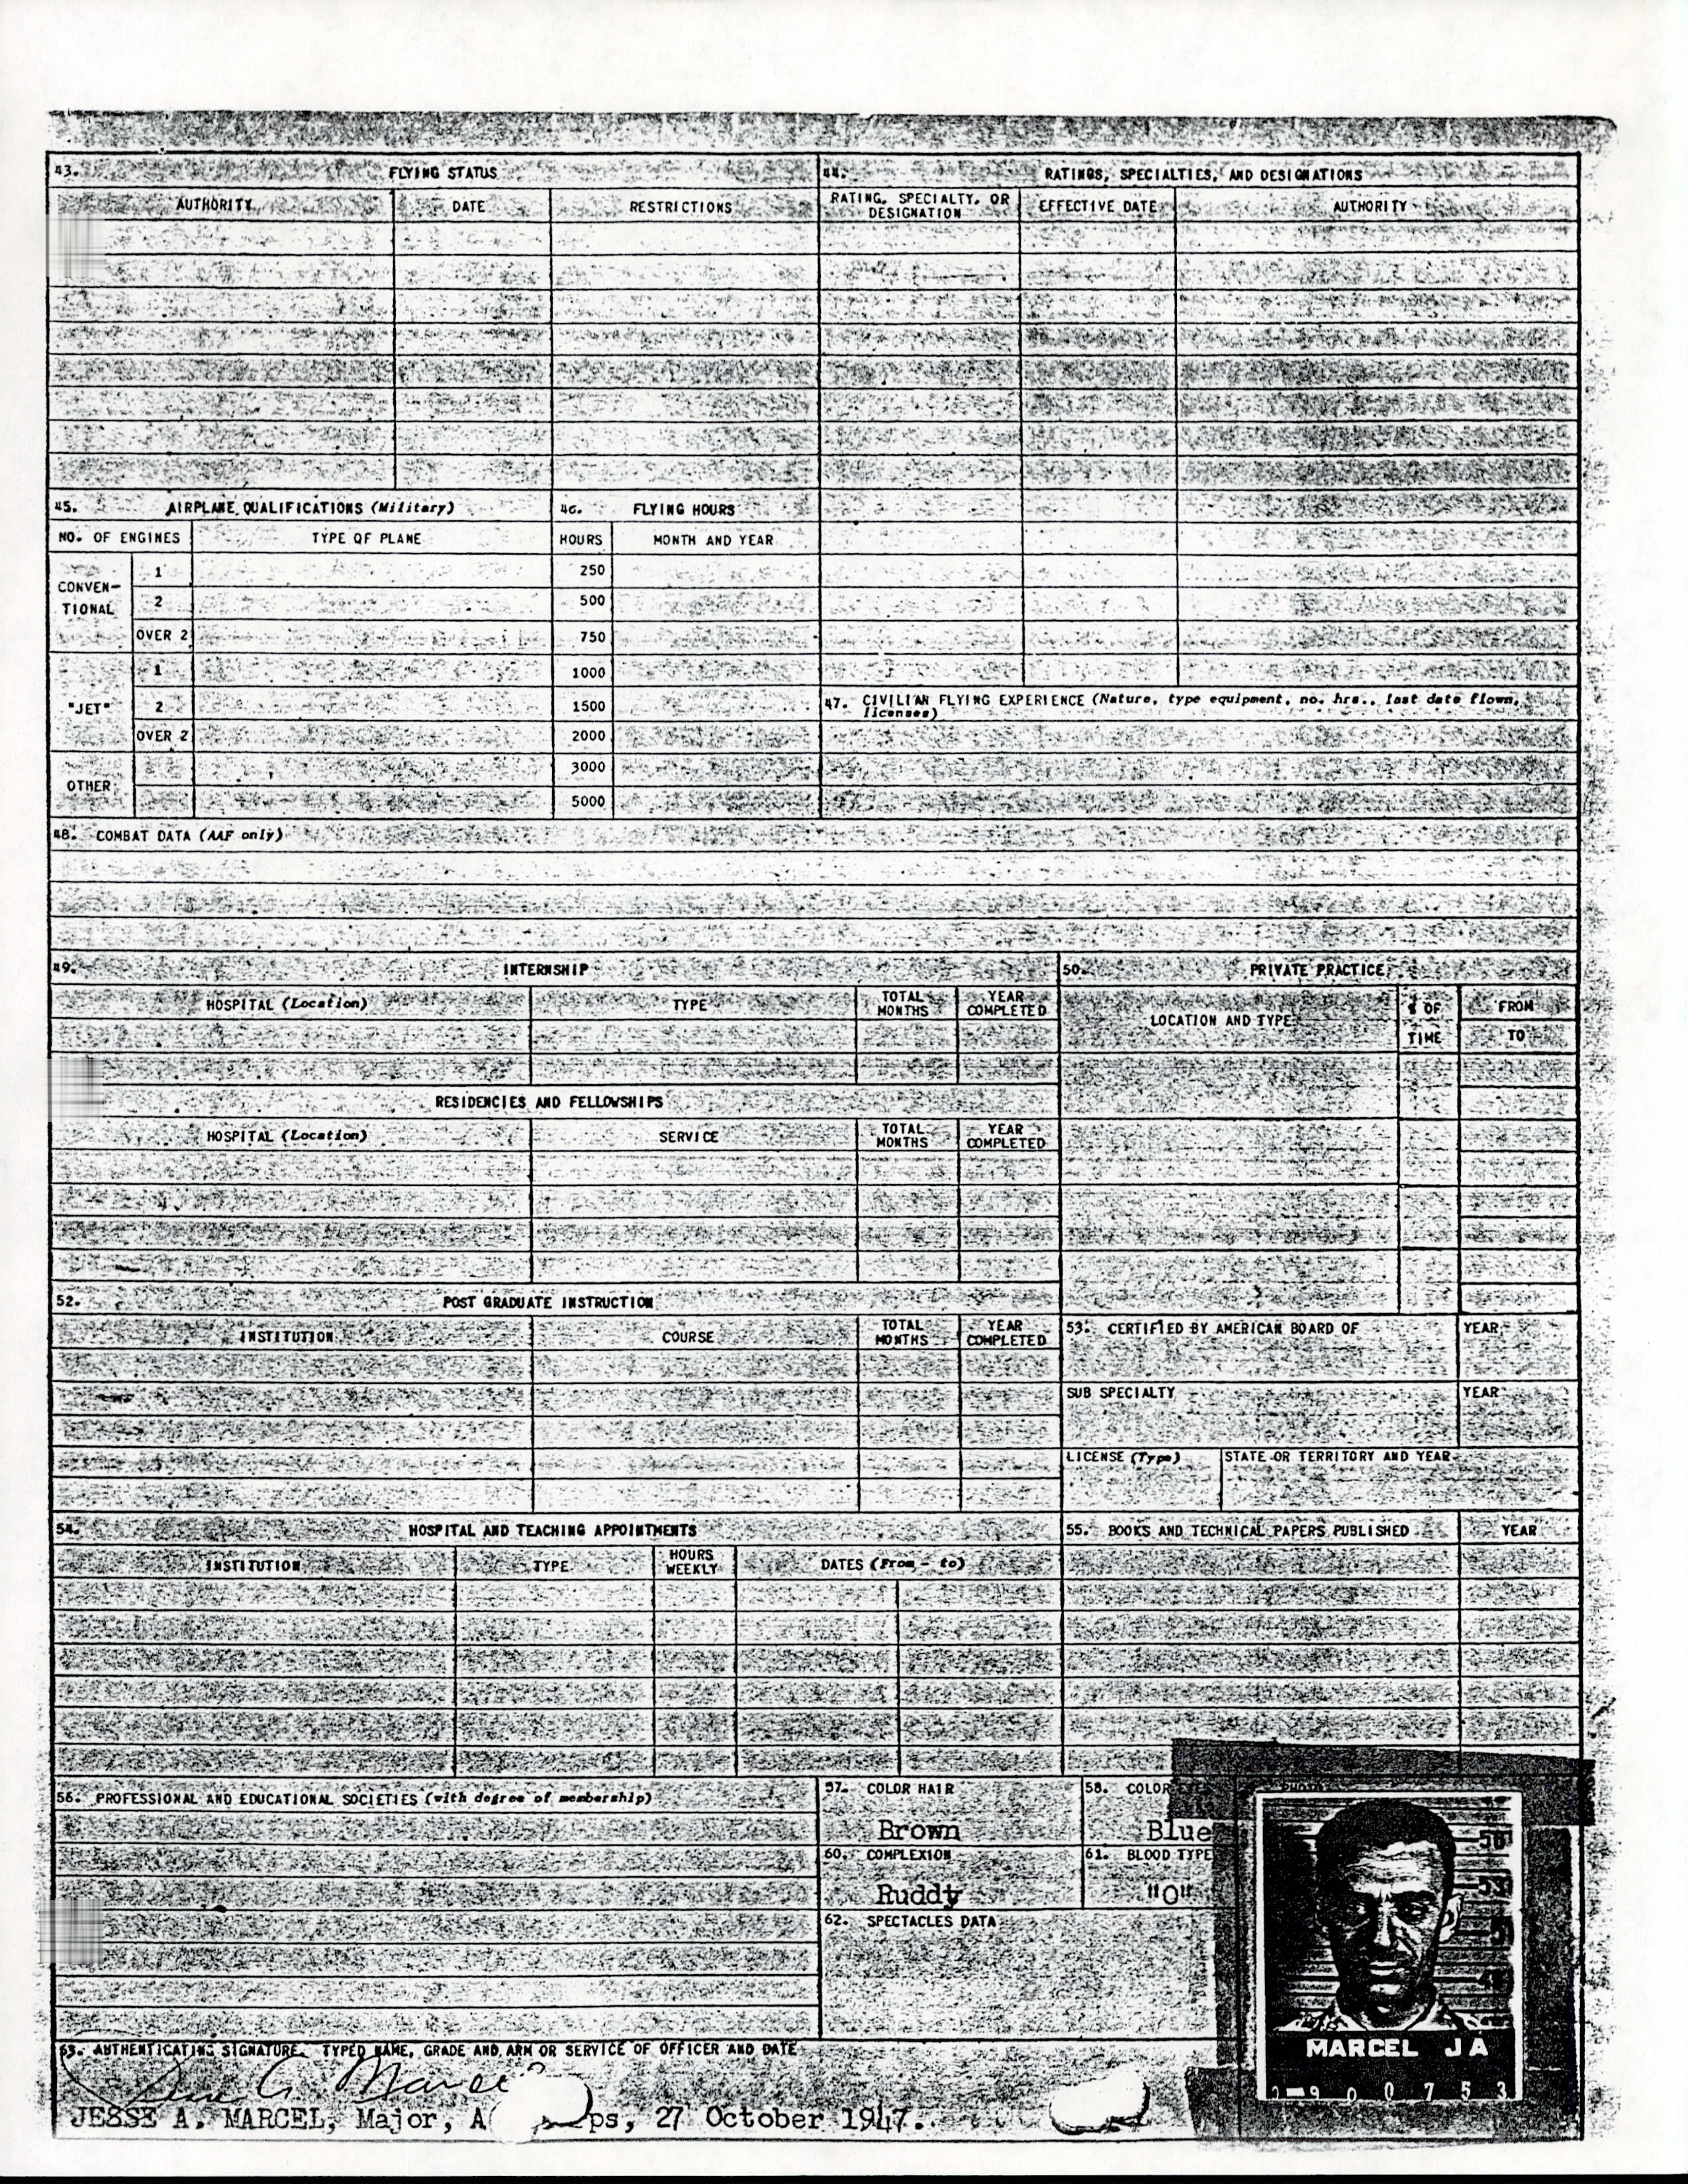 43. FLYING STATUS
AUTHORITY DATE RESTRICTIONS
44. RATINGS, SPECIALTIES, AND DESIGNATIONS
RATING, SPECIALTY, OR DESIGNATION EFFECTIVE DATE AUTHORITY
45. AIRPLANE QUALIFICATIONS (Military)
NO. OF ENGINES TYPE OF PLANE
CONVEN-
TIONAL
1
2
OVER 2
"JET"
1
2
OVER 2
OTHER
46. FLYING HOURS
HOURS MONTH AND YEAR
250
500
750
1000
1500
2000
3000
5000
47. CIVILIAN FLYING EXPERIENCE (Nature, type equipment, no. hrs., last date flown,
licenses)
48. COMBAT DATA (AAF only)
49. INTERNSHIP
HOSPITAL (Location) TYPE TOTAL MONTHS YEAR COMPLETED
RESIDENCIES AND FELLOWSHIPS
HOSPITAL (Location) SERVICE TOTAL MONTHS YEAR COMPLETED
50. PRIVATE PRACTICE
LOCATION AND TYPE % OF TIME FROM
TO
52. POST GRADUATE INSTRUCTION
INSTITUTION COURSE TOTAL MONTHS YEAR COMPLETED
53. CERTIFIED BY AMERICAN BOARD OF YEAR
SUB SPECIALTY YEAR
LICENSE (Type) STATE OR TERRITORY AND YEAR
54. HOSPITAL AND TEACHING APPOINTMENTS
INSTITUTION TYPE HOURS WEEKLY DATES (From - to)
55. BOOKS AND TECHNICAL PAPERS PUBLISHED YEAR
56. PROFESSIONAL AND EDUCATIONAL SOCIETIES (with degree of membership)
57. COLOR HAIR
Brown
58. COLOR EYES
Blue
PHOTO
60. COMPLEXION
Ruddy
61. BLOOD TYPE
"O"
62. SPECTACLES DATA
MARCEL JA
0 0 7 5 3
63. AUTHENTICATING SIGNATURE, TYPED NAME, GRADE AND ARM OR SERVICE OF OFFICER AND DATE
JESSE A. MARCEL, Major, A ps, 27 October 1947.